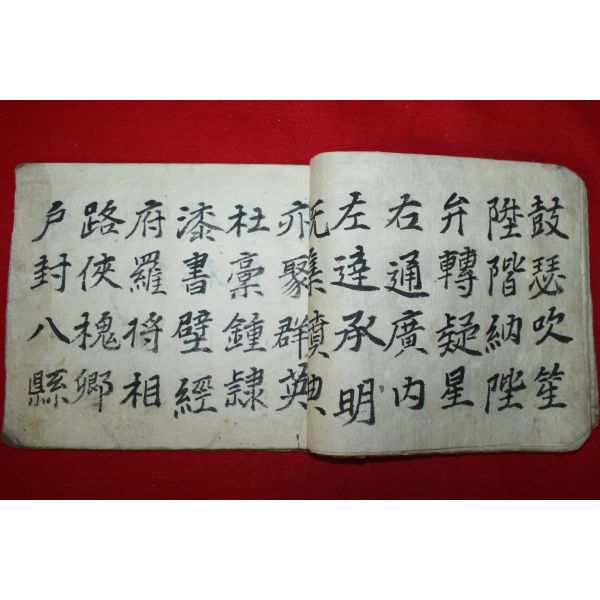 鼓瑟吹笙
陞階納陛
弁轉疑星
右通廣內
左達承明
既集墳典
亦聚群英
杜稾鍾隷
漆書壁經
府羅將相
路俠槐卿
戶封八縣